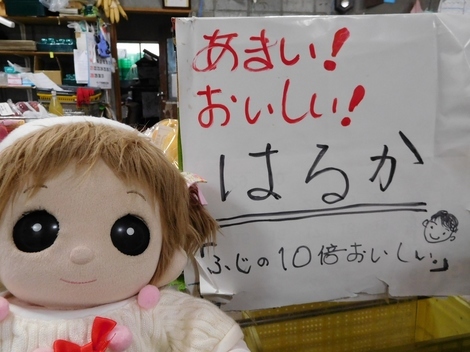 あまい!
おいしい!
はるか
「ふじの10倍おいしい。」